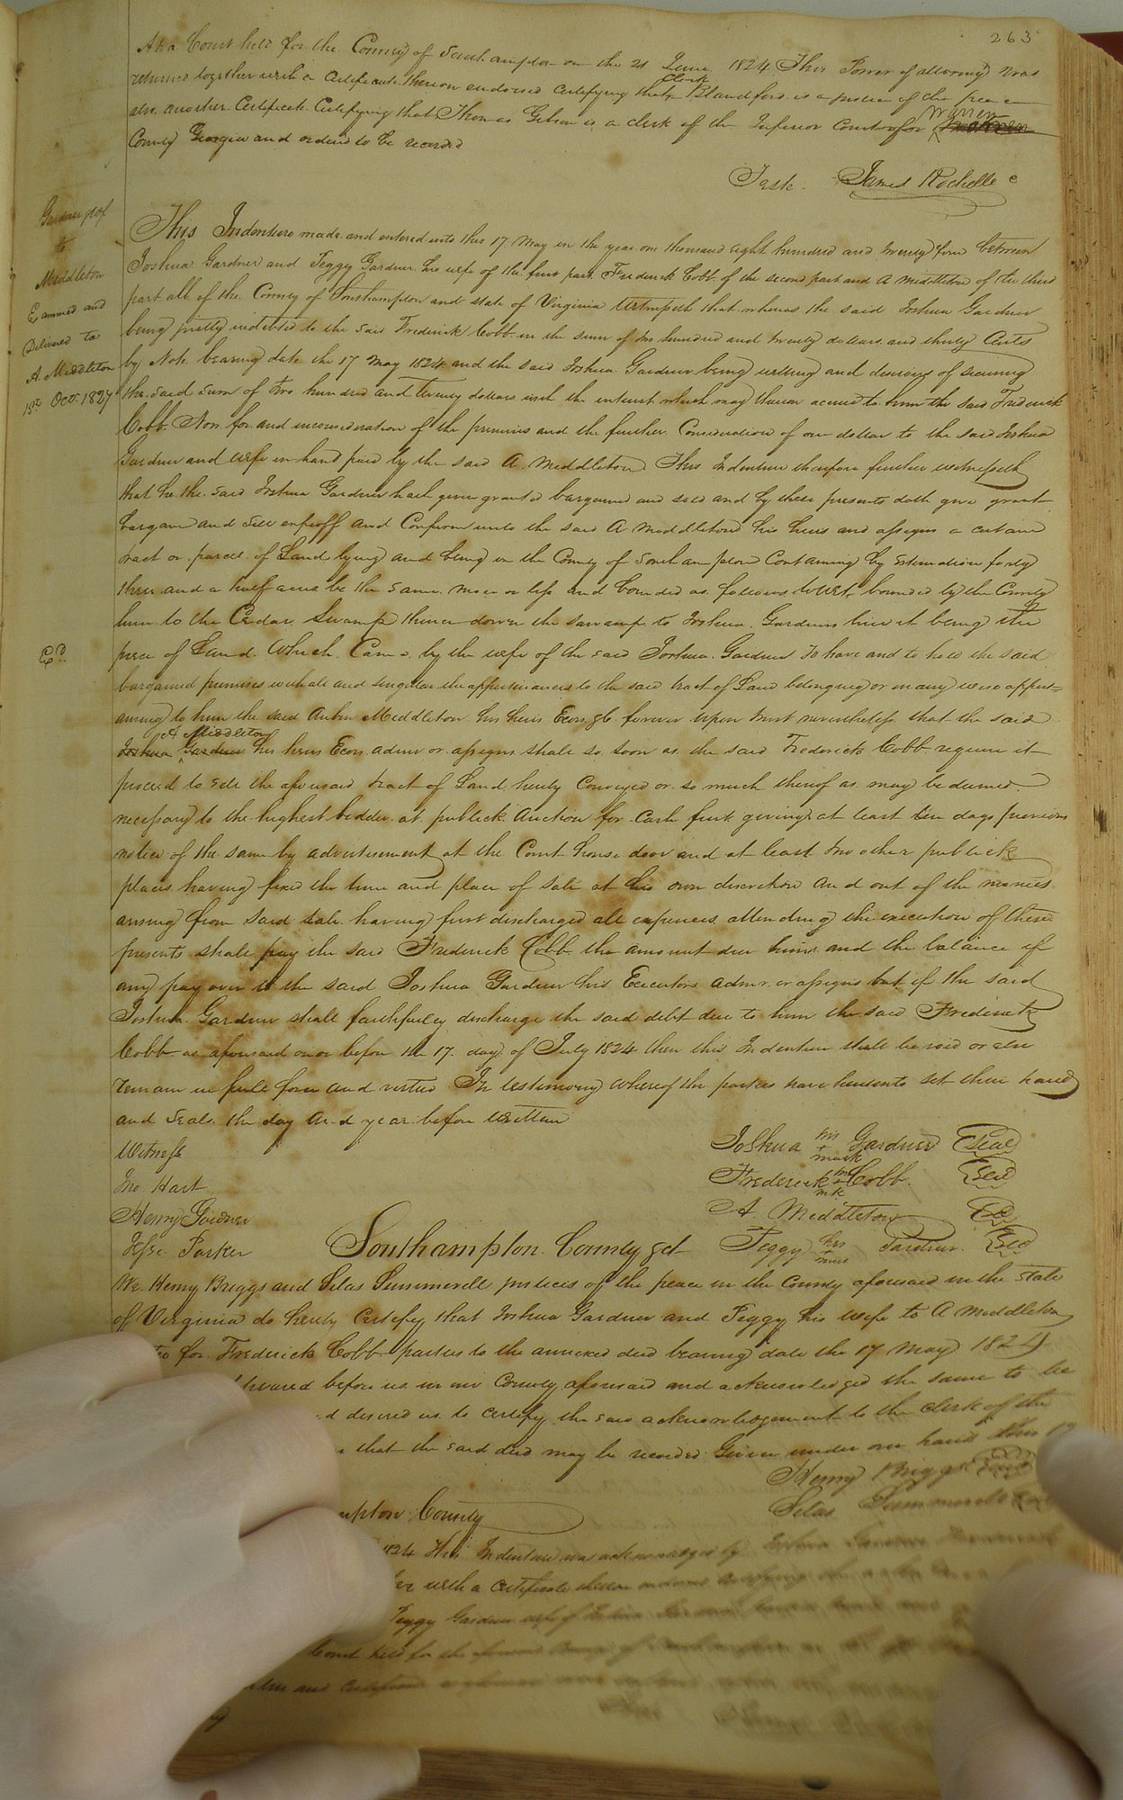 263
At a Court held for the County of Southampton on the 21 June 1824 This Power of attorney was
returned together with a Certificate thereon endorsed Certifying that Clark Blandford is a justice of the peace
also another Certificate Certifying that Thomas Gibson is a clerk of the Inferior Court of for Warren
County Georgia and ordered to be recorded
Teste. James Rochelle C
Gardner &ux
to
Middleton
Examined and
Delivered to
A Middleton
15th Octr. 1827
This Indenture made and entered into this 17 May in the year one thousand eight hundred and twenty four between
Joshua Gardner and Peggy Gardner his wife of the first part Frederick Cobb of the second part and A Middleton of the third
part all of the County of Southampton and state of Virginia Witnesseth that whereas the said Joshua Gardner
being justly indebted to the said Frederick Cobb in the sum of two hundred and twenty dollars and thirty Cents
by Note bearing date the 17 May 1824 and the said Joshua Gardner being willing and desirous of securing
the said sum of two hundred and twenty dollars with the interest which may thereon accrue to him the said Frederick
Cobb Now for and in consideration of the premises and the further Consideration of one dollar to the said Joshua
Gardner and wife in hand paid by the said A. Middleton This Indenture therefore further witnesseth
that he the said Joshua Gardner hath given granted bargained and sold and by these presents doth give grant
bargain and sell enfeoff and Confirm unto the said A Middleton his heirs and assigns a certain
tract or parcel of Land lying and being in the County of Southampton Containing by Estimation forty
three and a half acres be the same more or less and bounded as follows to wit, bounded by the County
line to the Cedar Swamp thence down the swamp to Joshua Gardners line it being the
Ed.
piece of Land Which Came by the wife of the said Joshua Gardner To have and to hold the said
bargained premises with all and singular the appurtenances to the said tract of Land belonging or in any wise appert=
aining to him the said Middleton his heirs Exors &c forever upon trust nevertheless that the said
A Middleton
Joshua Gardner his heirs Exors admr or assigns shall so soon as the said Frederick Cobb require it
proceed to sell the aforesaid tract of Land hereby Conveyed or so much thereof as may be deemed
necessary to the highest bidder at publick Auction for Cash first giving at least ten days previous
notice of the same by advertisement at the Court house door and at least two other publick
places having fixed the time and place of sale at his own discretion and out of the monies
arising from said sale having first discharged all expences attending the execution of these
presents shall pay the said Frederick Cobb the amount due him and the balance if
any pay over to the said Joshua Gardner his Executors admr. or assigns but if the said
Joshua Gardner shall faithfully discharge the said debt due to him the said Frederick
Cobb as aforesaid on or before the 17 day of July 1824 then this Indenture shall be void or else
remain in full force and virtue In testimony Whereof the parties have hereunto set their hands
and seals the day and year before Written
Witness
Joshua his + mark Gardner Seal
Jno Hart
Frederick his + mk Cobb Seal
Henry Gardner
A Middleton
Jesse Parker
Peggy her + mark Gardner Seal
Southampton County Sct
We Henry Briggs and Silas Summerell justices of the peace in the County aforesaid in the state
of Virginia do hereby Certify that Joshua Gardner and Peggy his wife to A Middleton
for Frederick Cobb parties to the annexed deed bearing date the 17 May 1824
before us in our County aforesaid and acknowledged the same to be
desired us to certify the said acknowledgement to the clerk of the
that the said deed may be recorded Given under our hands this 17
Henry Briggs Seal
Silas Summerell
County
1824 This Indenture was acknowledged by Joshua Gardner
with a Certificate thereon
Peggy Gardner wife of
Court held for the
and Certificate